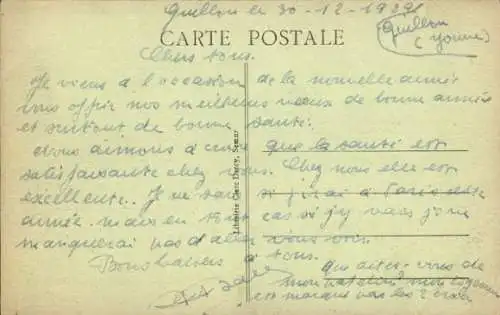 Guillon le 30-12-1929
Guillon
(Yonne)
CARTE POSTALE
Chers tous.
Je viens à l'occasion de la nouvelle année
vous offrir nos meilleurs vœux de bonne année
et surtout de bonne santé.
Nous aimons à croire que la santé est
satisfaisante chez vous. Chez nous elle est
excellente. Je ne sais si j'irai à Paris cette
année. mais en tout cas si j'y vais je ne
manquerai pas d'aller vous voir.
Bons baisers à tous.
Que dites-vous de
mon
est marqué par les 2 croix
Librairie Casse Darcy, Semur